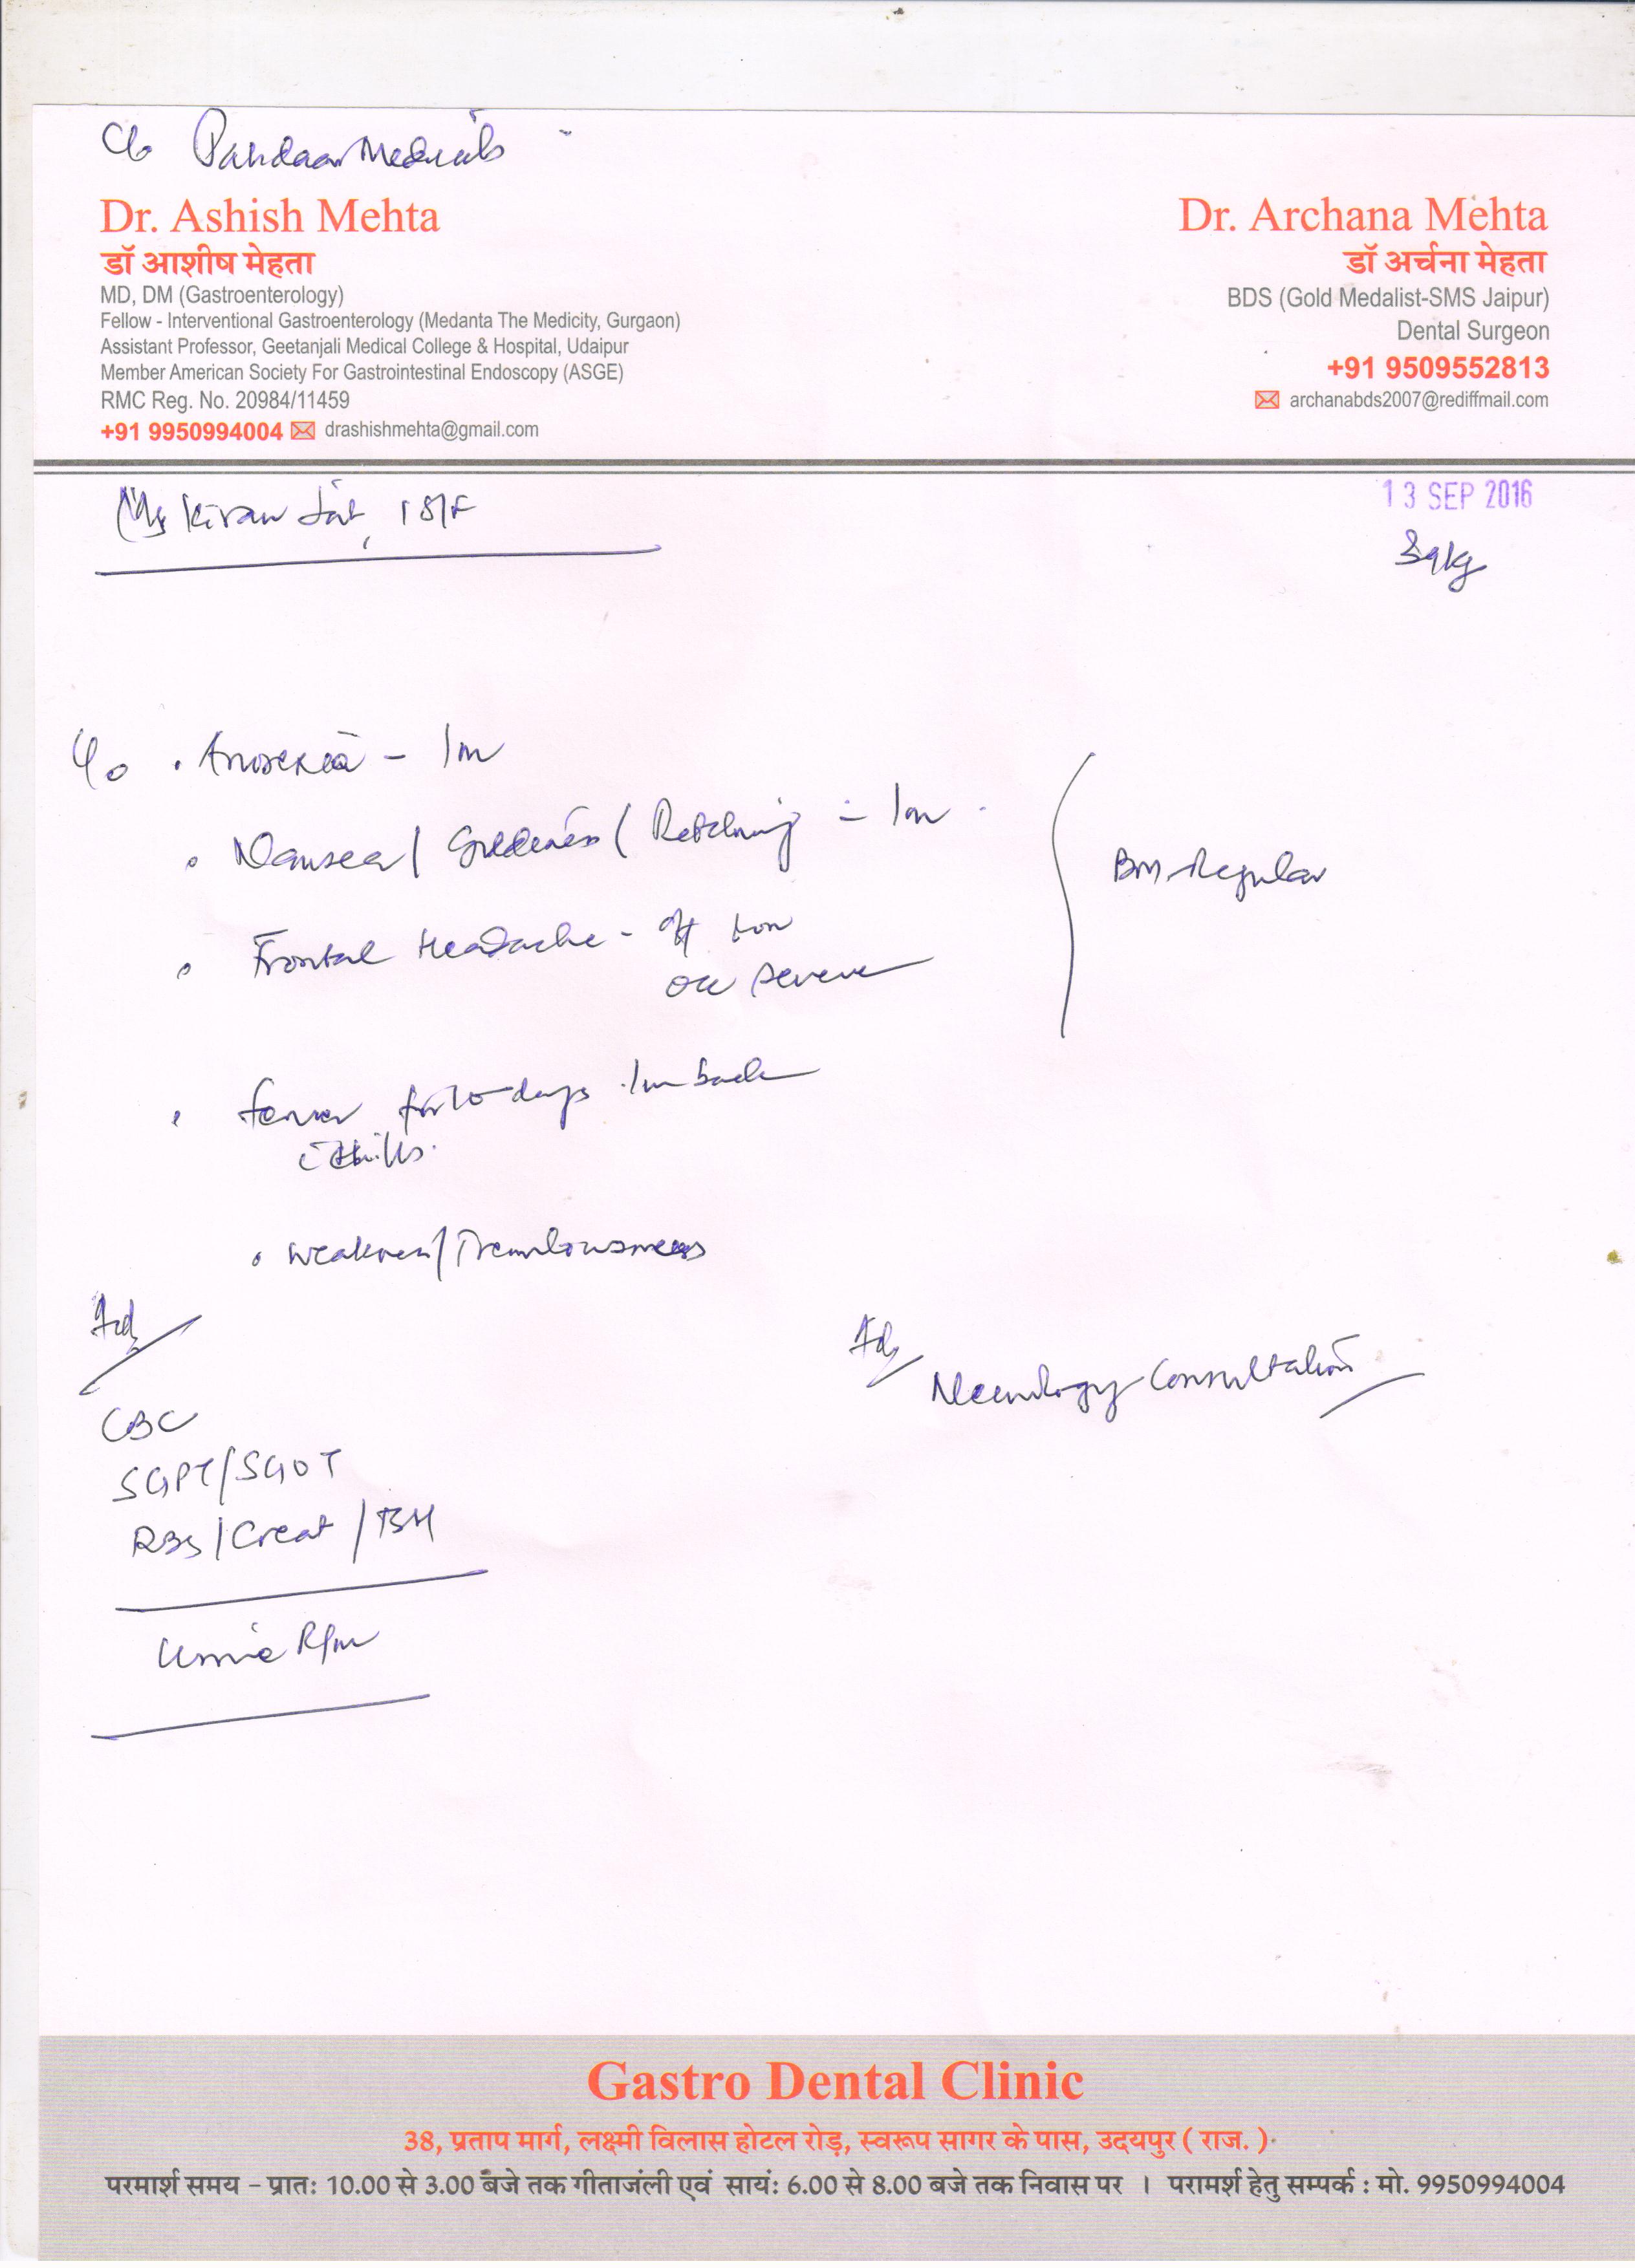 C/o Pandaar Medicals
Dr. Ashish Mehta
डॉ आशीष मेहता
MD, DM (Gastroenterology)
Fellow - Interventional Gastroenterology (Medanta The Medicity, Gurgaon)
Assistant Professor, Geetanjali Medical College & Hospital, Udaipur
Member American Society For Gastrointestinal Endoscopy (ASGE)
RMC Reg. No. 20984/11459
+91 9950994004 drashishmehta@gmail.com
Dr. Archana Mehta
डॉ अर्चना मेहता
BDS (Gold Medalist-SMS Jaipur)
Dental Surgeon
+91 9509552813
archanabds2007@rediffmail.com
13 SEP 2016
Ms Kiran Jat, 18/F
39kg
C/o . Anorexia - 1m
Nausea / Giddiness / Retching - 1m
Frontal Headache - off & on
occ severe
BM Regular
Fever for 10 days 1m back
c chills.
Weakness / Tremulousness
Adv
CBC
SGPT/SGOT
RBS / Creat / TSH
Urine R/m
Adv
Neurology Consultation
Gastro Dental Clinic
38, प्रताप मार्ग, लक्ष्मी विलास होटल रोड़, स्वरूप सागर के पास, उदयपुर ( राज. )
परमार्श समय – प्रात: 10.00 से 3.00 बजे तक गीताजंली एवं सायं: 6.00 से 8.00 बजे तक निवास पर । परामर्श हेतु सम्पर्क : मो. 9950994004